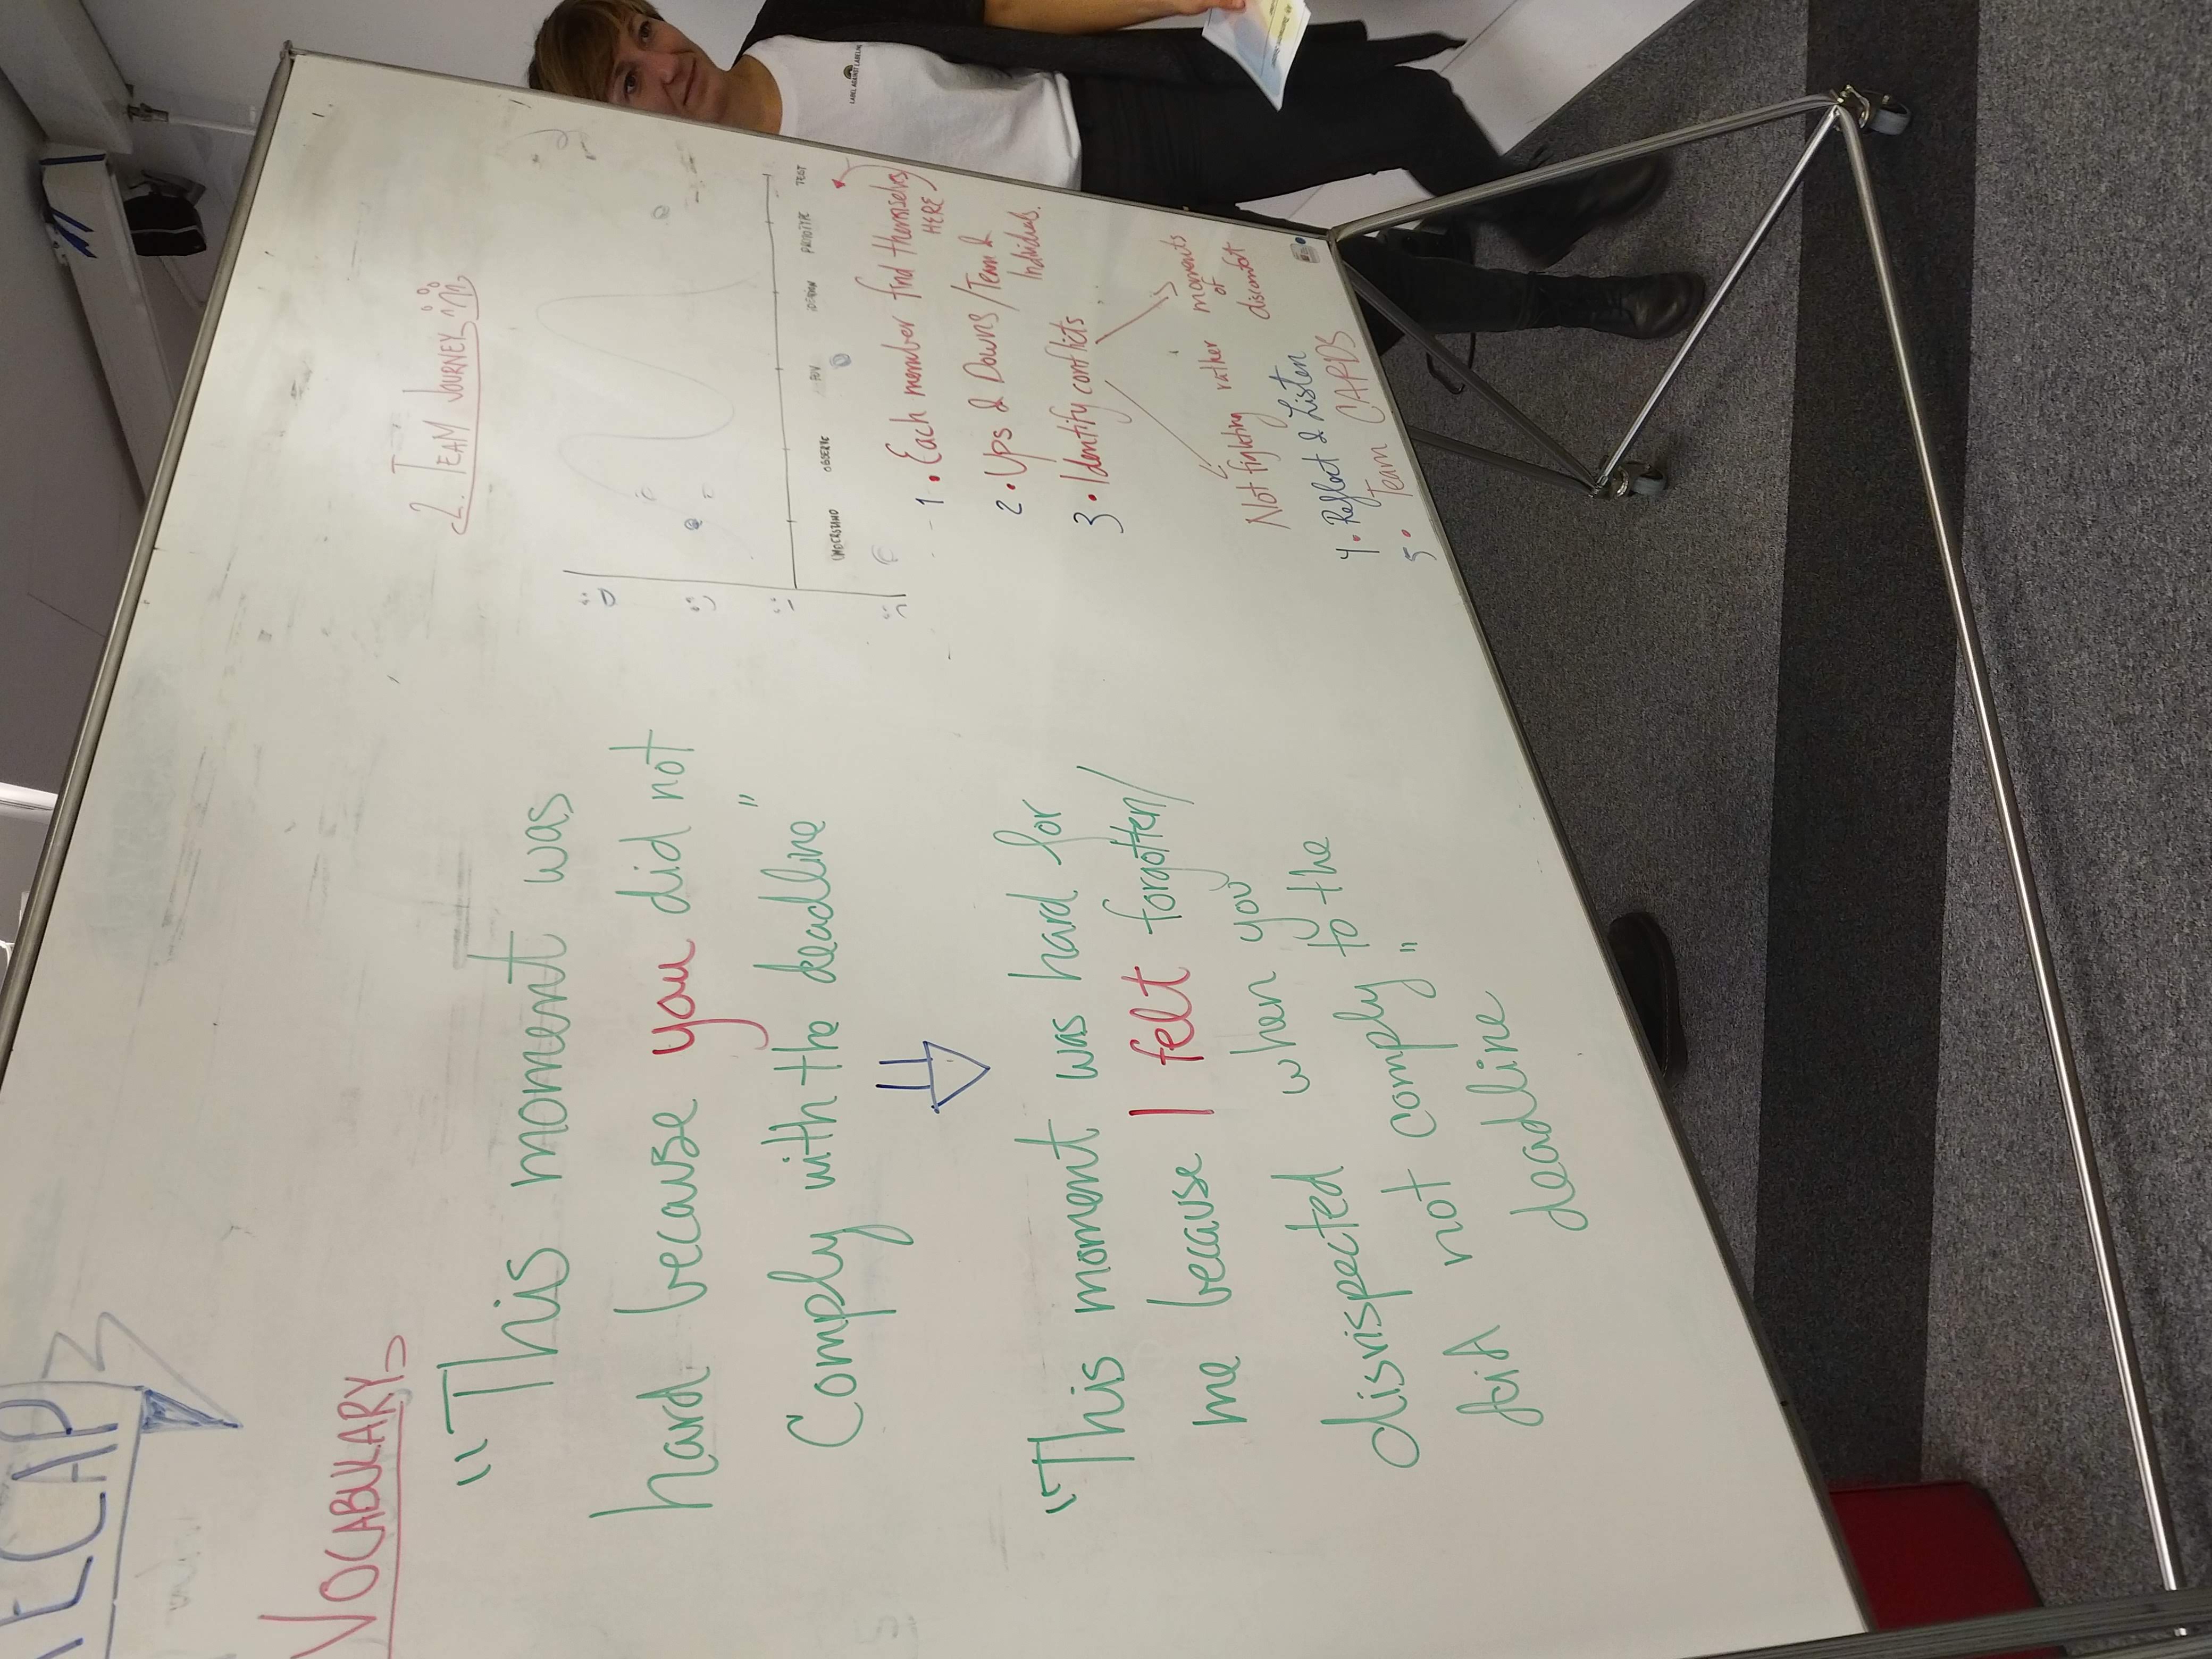 RECAP
VOCABULARY
"This moment was
hard because you did not
Comply with the deadline"
"This moment was hard for
me because I felt forgotten/
disrispected when you
did not comply to the
deadline"
2. TEAM JOURNEY
UNDERSTAND OBSERVE POV IDEATION PROTOTYPE TEST
1. Each member find themselves
HERE
2. Ups & Downs / Team &
Individuals.
3. Identify conflicts
Not fighting rather moments
of
discomfort
4. Reflect & Listen
5. Team CARDS
LABEL AGAINST LABELING